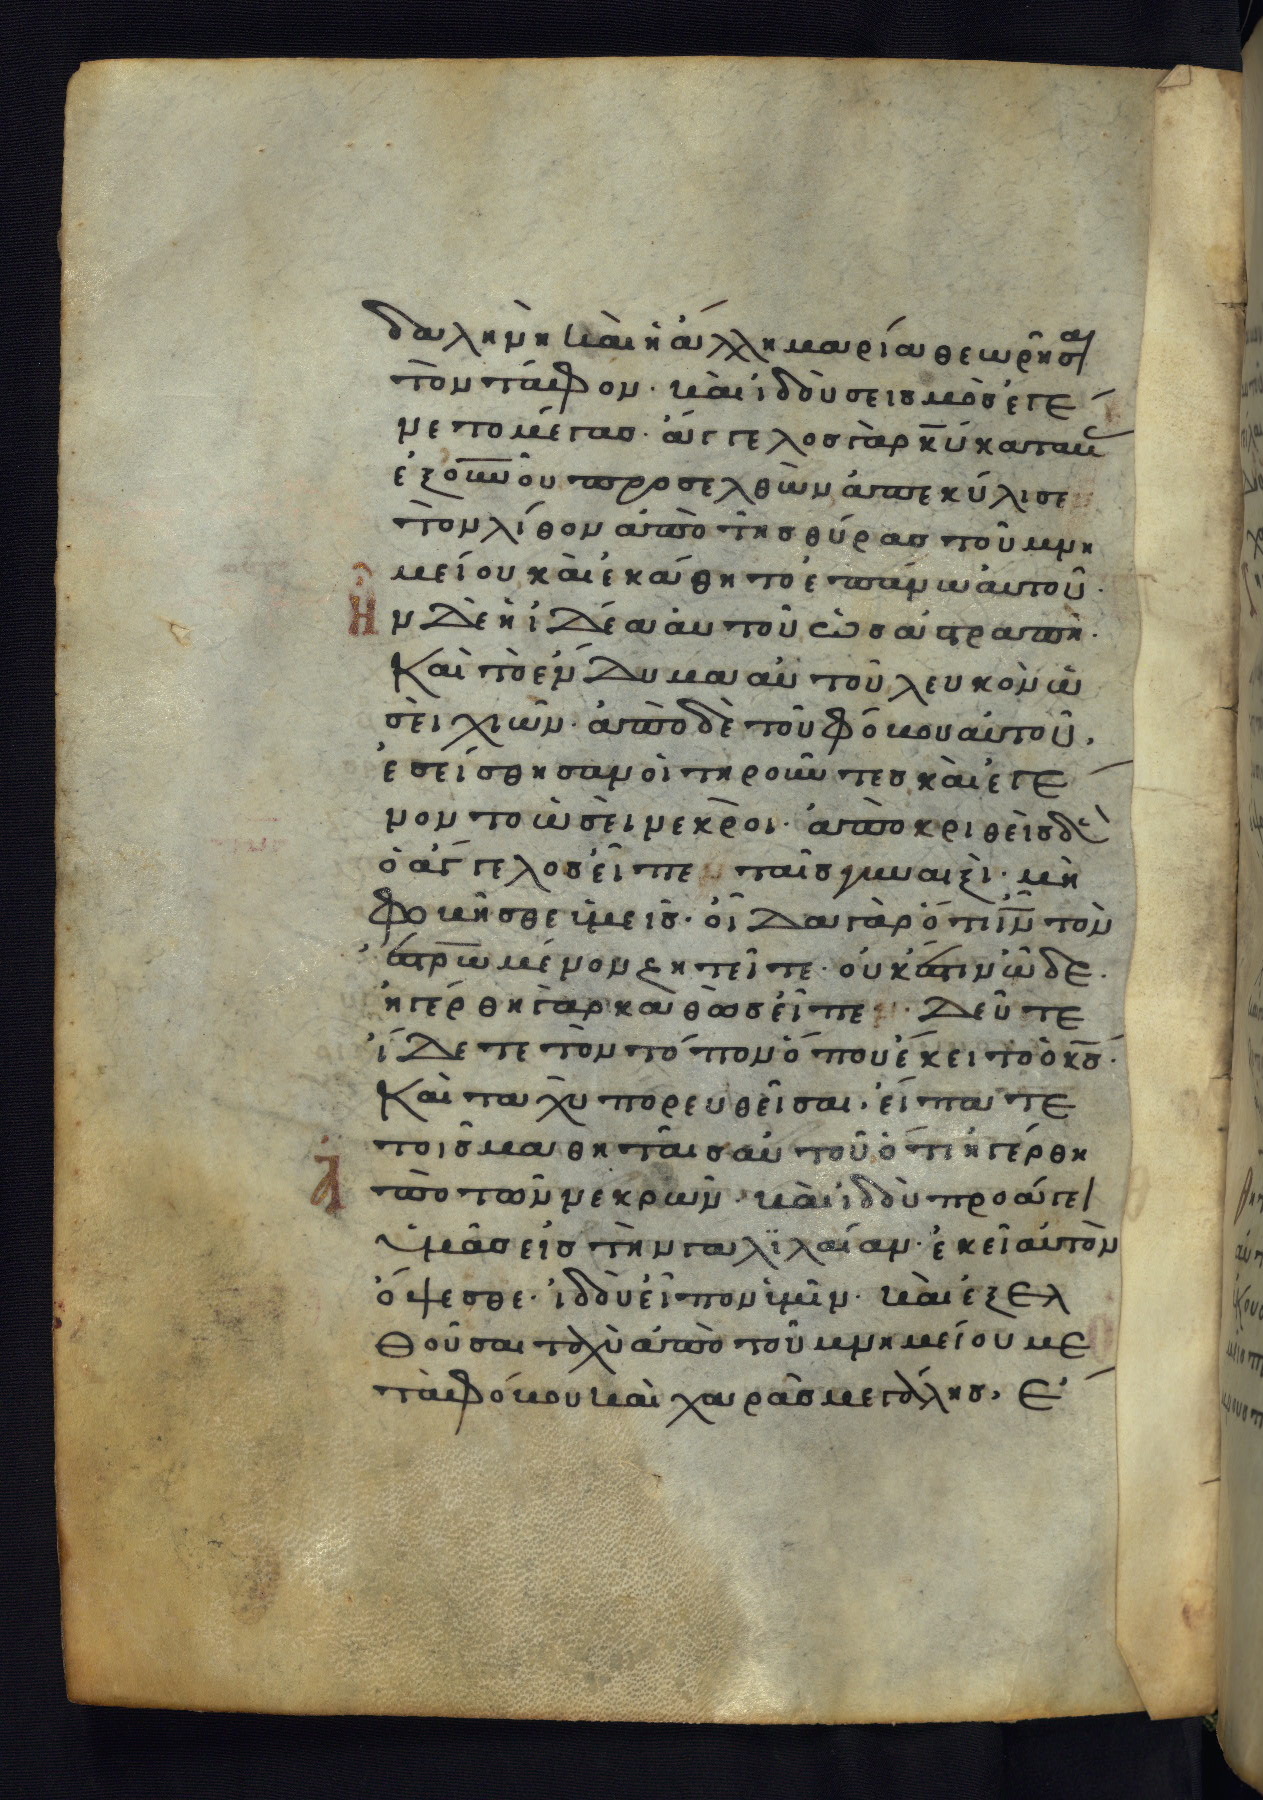 δαληνὴ καὶ ἡ ἄλλη μαρία θεωρῆσαι
τὸν τάφον· καὶ ἰδοὺ σεισμὸσ ἐγέ
νετο μέγασ· ἄγγελοσ γὰρ κ̅υ̅ καταβ
ἐξ ο̅υ̅ν̅ο̅υ̅ προσελθὼν ἀπεκύλισε
τὸν λίθον ἀπὸ τῆσ θύρασ τοῦ μνη
μείου καὶ ἐκάθητο ἐπάνω αὐτοῦ·
ἦν δὲ ἡ ἰδέα αὐτοῦ ὡσ ἀστραπὴ·
Καὶ τὸ ἔνδυμα αὐτοῦ λευκὸν ὡ
σεὶ χιών· ἀπὸ δὲ τοῦ φόβου αὐτοῦ,
ἐσείσθησαν οἱ τηροῦντεσ καὶ ἐγέ
νοντο ὡσεὶ νεκροι· ἀποκριθεὶσ δὲ
ὁ ἄγγελοσ εἶπε ταῖσ γυναιξὶ· μὴ
φοβῆσθε ὑμεῖσ· οἶδα γὰρ ὅτι ι̅ν̅ τὸν
ἐστρω̅μένον ζητεῖτε· οὐκ ἔστιν ὧδε·
ἠγέρθη γὰρ καθὼσ εἶπε · Δεῦτε
ἴδετε τὸν τόπον ὅπου ἔκειτο ὁ κ̅σ̅·
Καὶ ταχὺ πορευθεῖσαι, εἴπατε
τοῖσ μαθηταῖσ αὐτοῦ ὅτι ἠγέρθη
ἀπὸ τῶν νεκρῶν· καὶ ἰδοὺ προάγει
ὑμᾶσ εἰσ τὴν γαλϊλαίαν· ἐκεῖ αὐτὸν
ὄψεσθε· ἰδοὺ εἶπον ὑμῖν· καὶ ἐξελ
θοῦσαι ταχὺ ἀπὸ τοῦ μνημείου με
τὰ φόβου καὶ χαρᾶσ μεγάλησ, ἔ